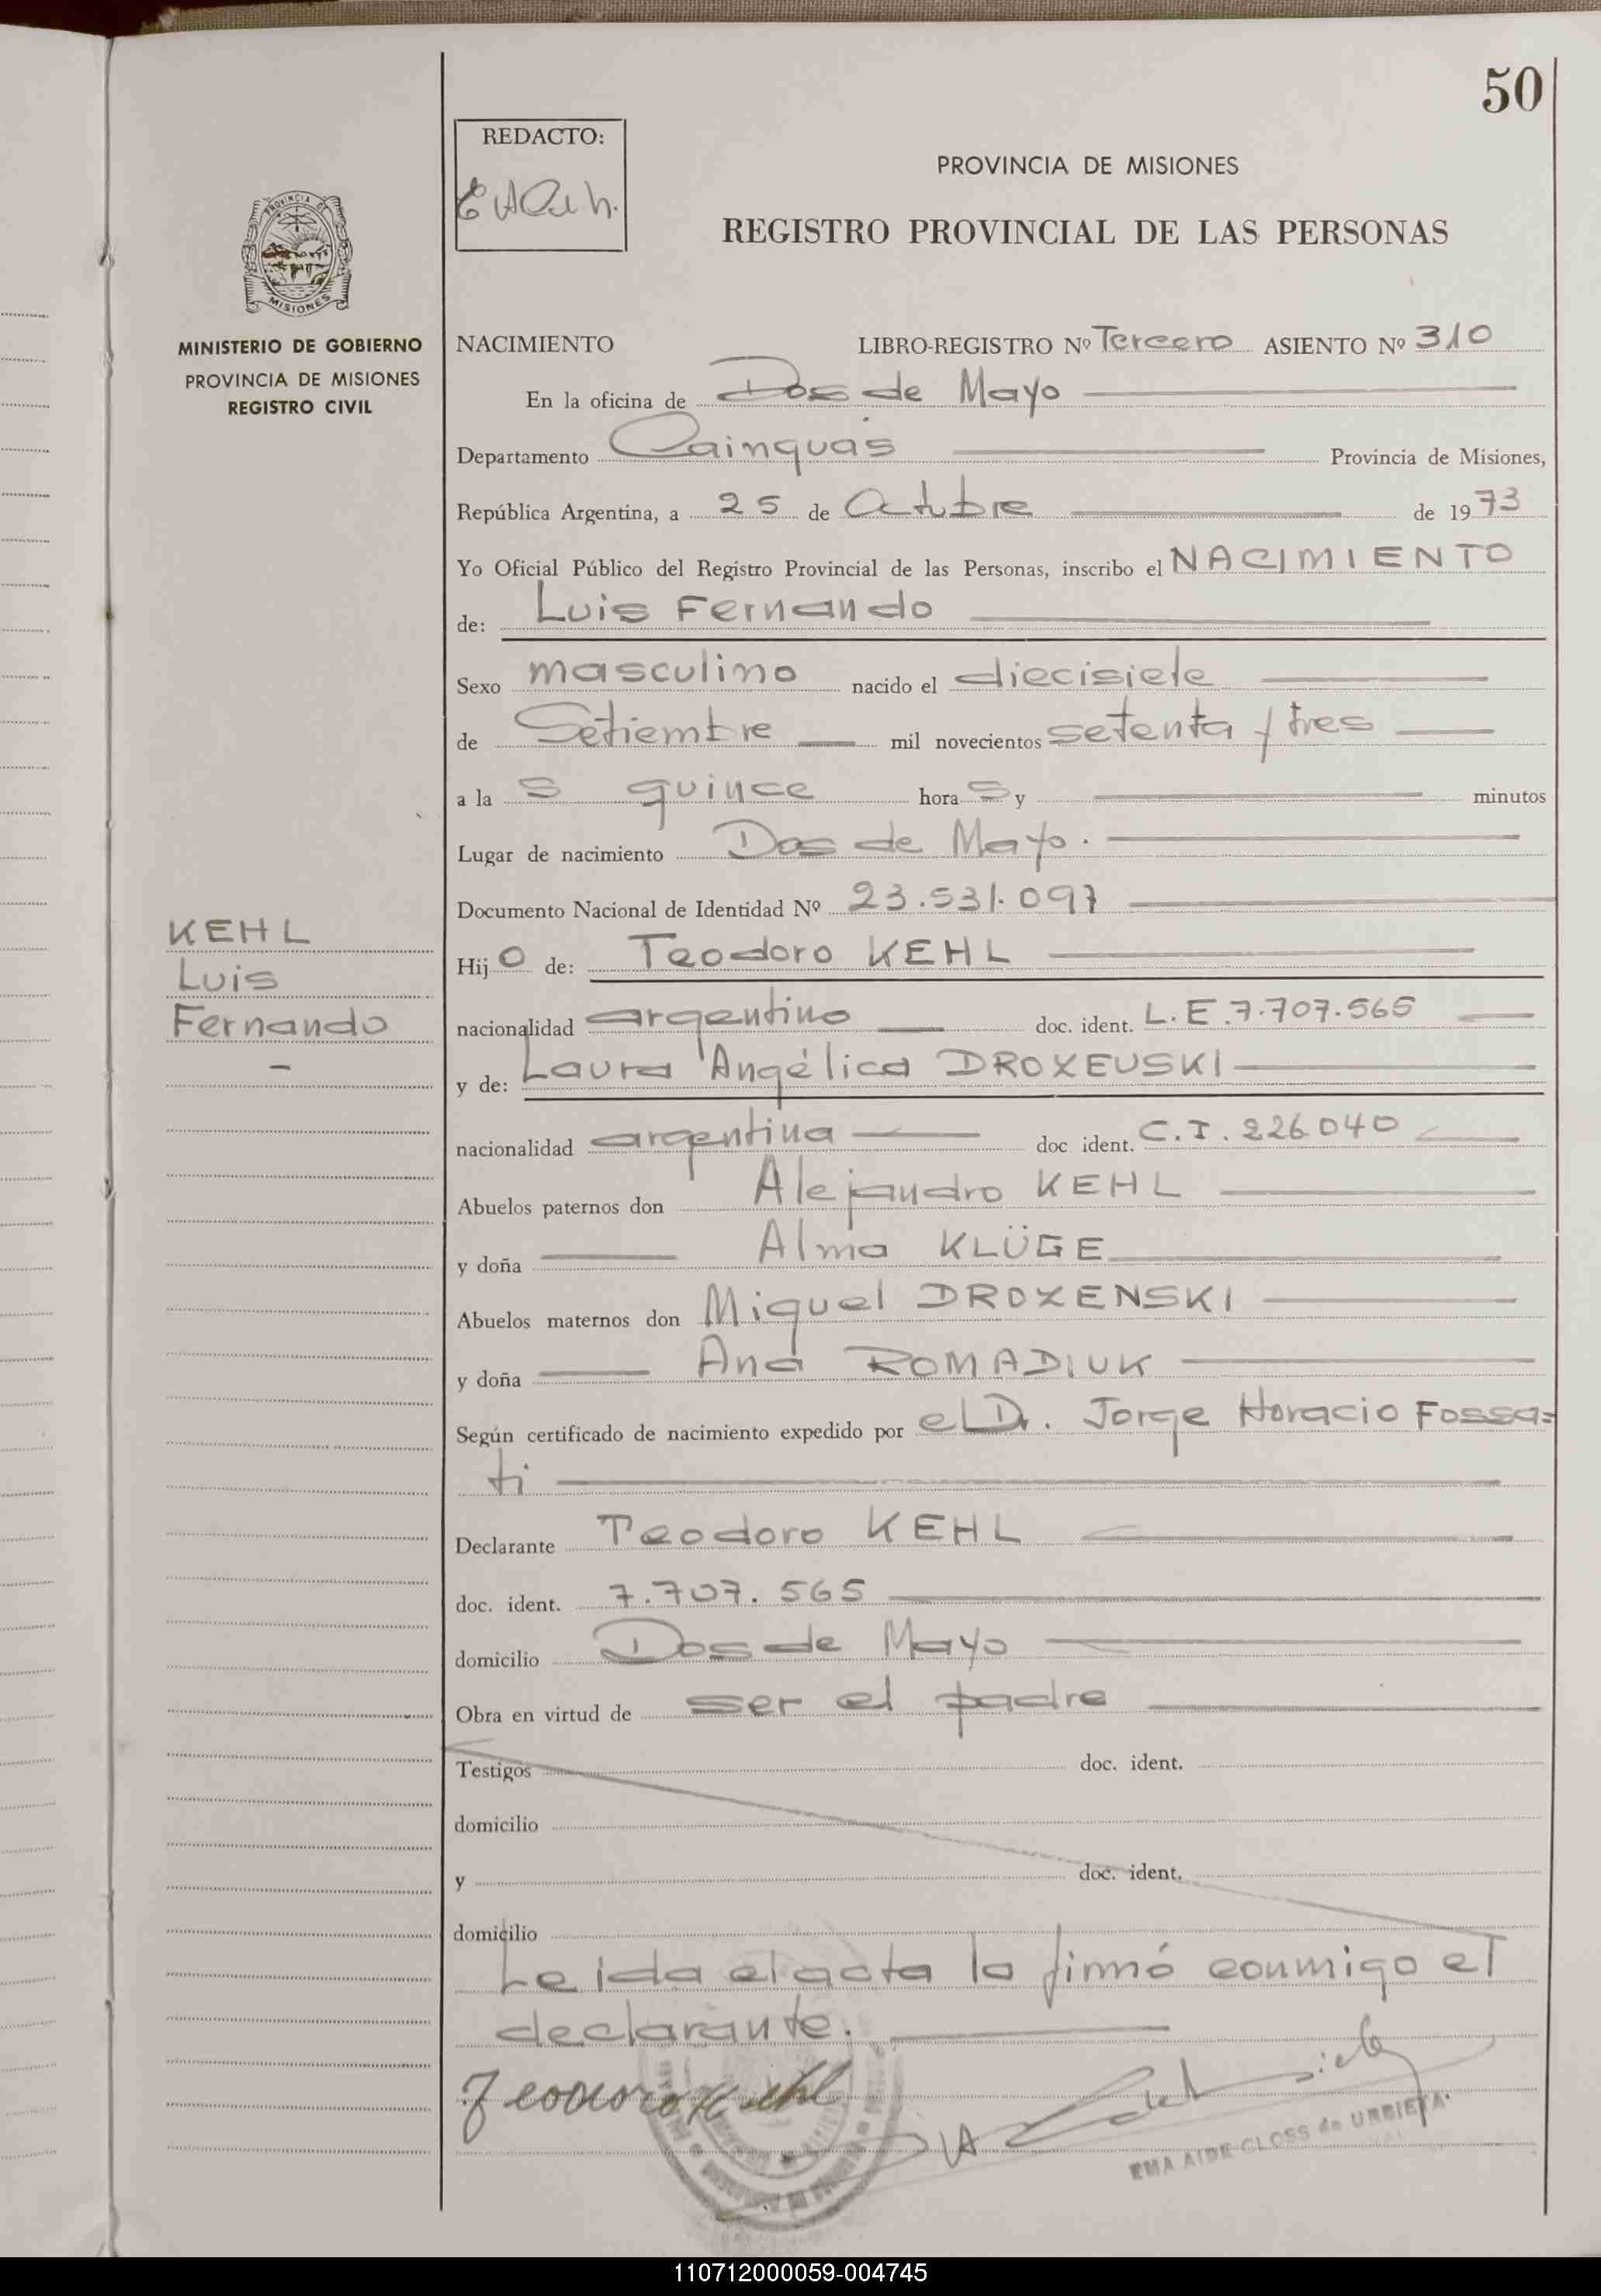 50
REDACTO:
PROVINCIA DE MISIONES
REGISTRO PROVINCIAL DE LAS PERSONAS
PROVINCIA DE
MISIONES
MINISTERIO DE GOBIERNO
PROVINCIA DE MISIONES
REGISTRO CIVIL
NACIMIENTO LIBRO-REGISTRO Nº Tercero ASIENTO Nº 310
En la oficina de Dos de Mayo
Departamento Cainguás Provincia de Misiones,
República Argentina, a 25 de Octubre de 1973
Yo Oficial Público del Registro Provincial de las Personas, inscribo el NACIMIENTO
de: Luis Fernando
Sexo masculino nacido el diecisiete
de Setiembre mil novecientos setenta y tres
a la s quince hora s y minutos
Lugar de nacimiento Dos de Mayo.
Documento Nacional de Identidad Nº 23.531.097
KEHL
Luis
Fernando
Hij o de: Teodoro KEHL
nacionalidad argentino doc. ident. L.E.7.707.565
y de: Laura Angélica DROXEUSKI
nacionalidad argentina doc ident. C.I. 226040
Abuelos paternos don Alejandro KEHL
y doña Alma KLÜGE
Abuelos maternos don Miguel DROXENSKI
y doña Ana ROMADIUK
Según certificado de nacimiento expedido por el Dr. Jorge Horacio Fossa=
ti
Declarante Teodoro KEHL
doc. ident. 7.707.565
domicilio Dos de Mayo
Obra en virtud de ser el padre
Testigos doc. ident.
domicilio
y doc. ident.
domicilio
Leida el acta la firmó conmigo el
declarante.
Teodoro Kehl
EMA AIDE CLOSS de URBIETA
110712000059-004745